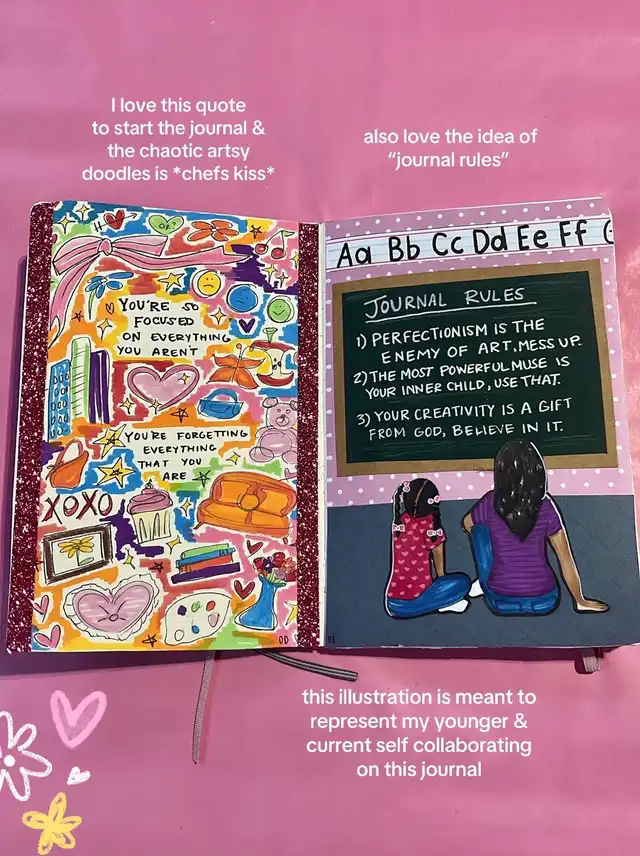 I love this quote
to start the journal &
the chaotic artsy
doodles is *chefs kiss*
also love the idea of
"journal rules"
H
OK!
YOU'RE SO
FOCUSED
ON EVERYTHING
YOU AREN'T
YOU'RE FORGETTING
EVERYTHING
THAT YOU
ARE
XOXO
00
Aa Bb Cc Dd Ee Ff
JOURNAL RULES
1) PERFECTIONISM IS THE
ENEMY OF ART, MESS UP.
2) THE MOST POWERFUL MUSE IS
YOUR INNER CHILD, USE THAT.
3) YOUR CREATIVITY IS A GIFT
FROM GOD, BELIEVE IN IT.
01
this illustration is meant to
represent my younger &
current self collaborating
on this journal